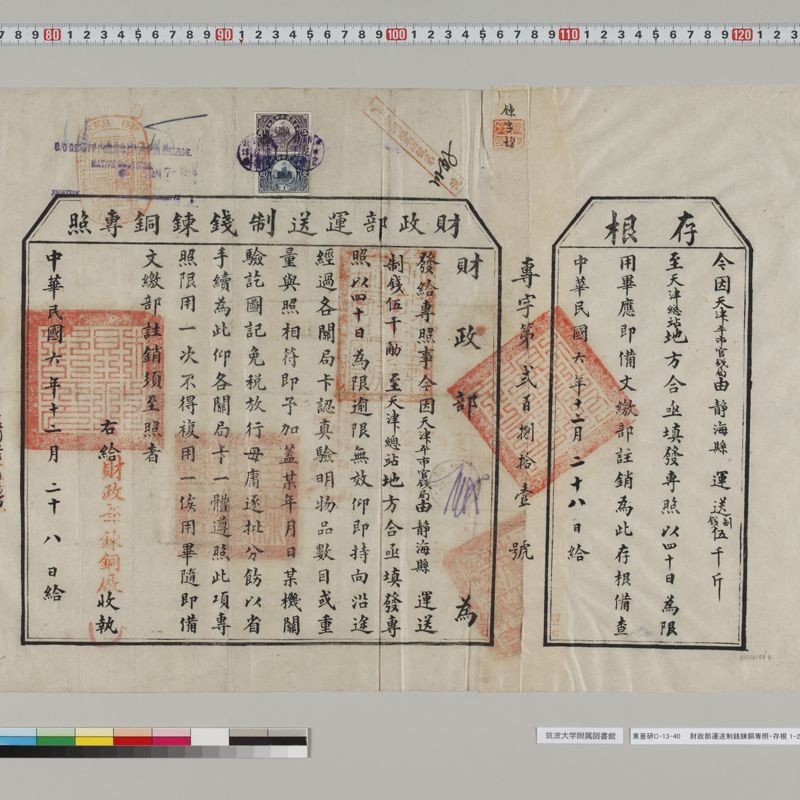 7 8 9 80 1 2 3 4 5 6 7 8 9 90 1 2 3 4 5 6 7 8 9 100 1 2 3 4 5 6 7 8 9 110 1 2 3 4 5 6 7 8 9 120 1 2
存根
令因天津平市官錢局由靜海縣 運送制錢伍千斤
至天津總站地方合亟填發專照以四十日為限
用畢應即備文繳部註銷為此存根備查
中華民國六年十二月二十八日給
專字第貳百捌拾壹號
財政部運送制錢鍊銅專照
財政部為
發給專照事令因天津平市官錢局由靜海縣 運送
制錢伍千觔 至天津總站地方合亟填發專
照以四十日為限逾限無效仰即持向沿途
經過各關局卡認真驗明物品數目或重
量與照相符即予加蓋某年月日某機關
驗訖圖記免稅放行毋庸逐批分飭以省
手續為此仰各關局卡一體遵照此項專
照限用一次不得複用一俟用畢隨即備
文繳部註銷須至照者
右給財政部鍊銅廠收執
中華民國六年十二月二十八日給
筑波大学附属図書館
東亜研C-13-40 財政部運送制銭錬銅専照・存根 1-2